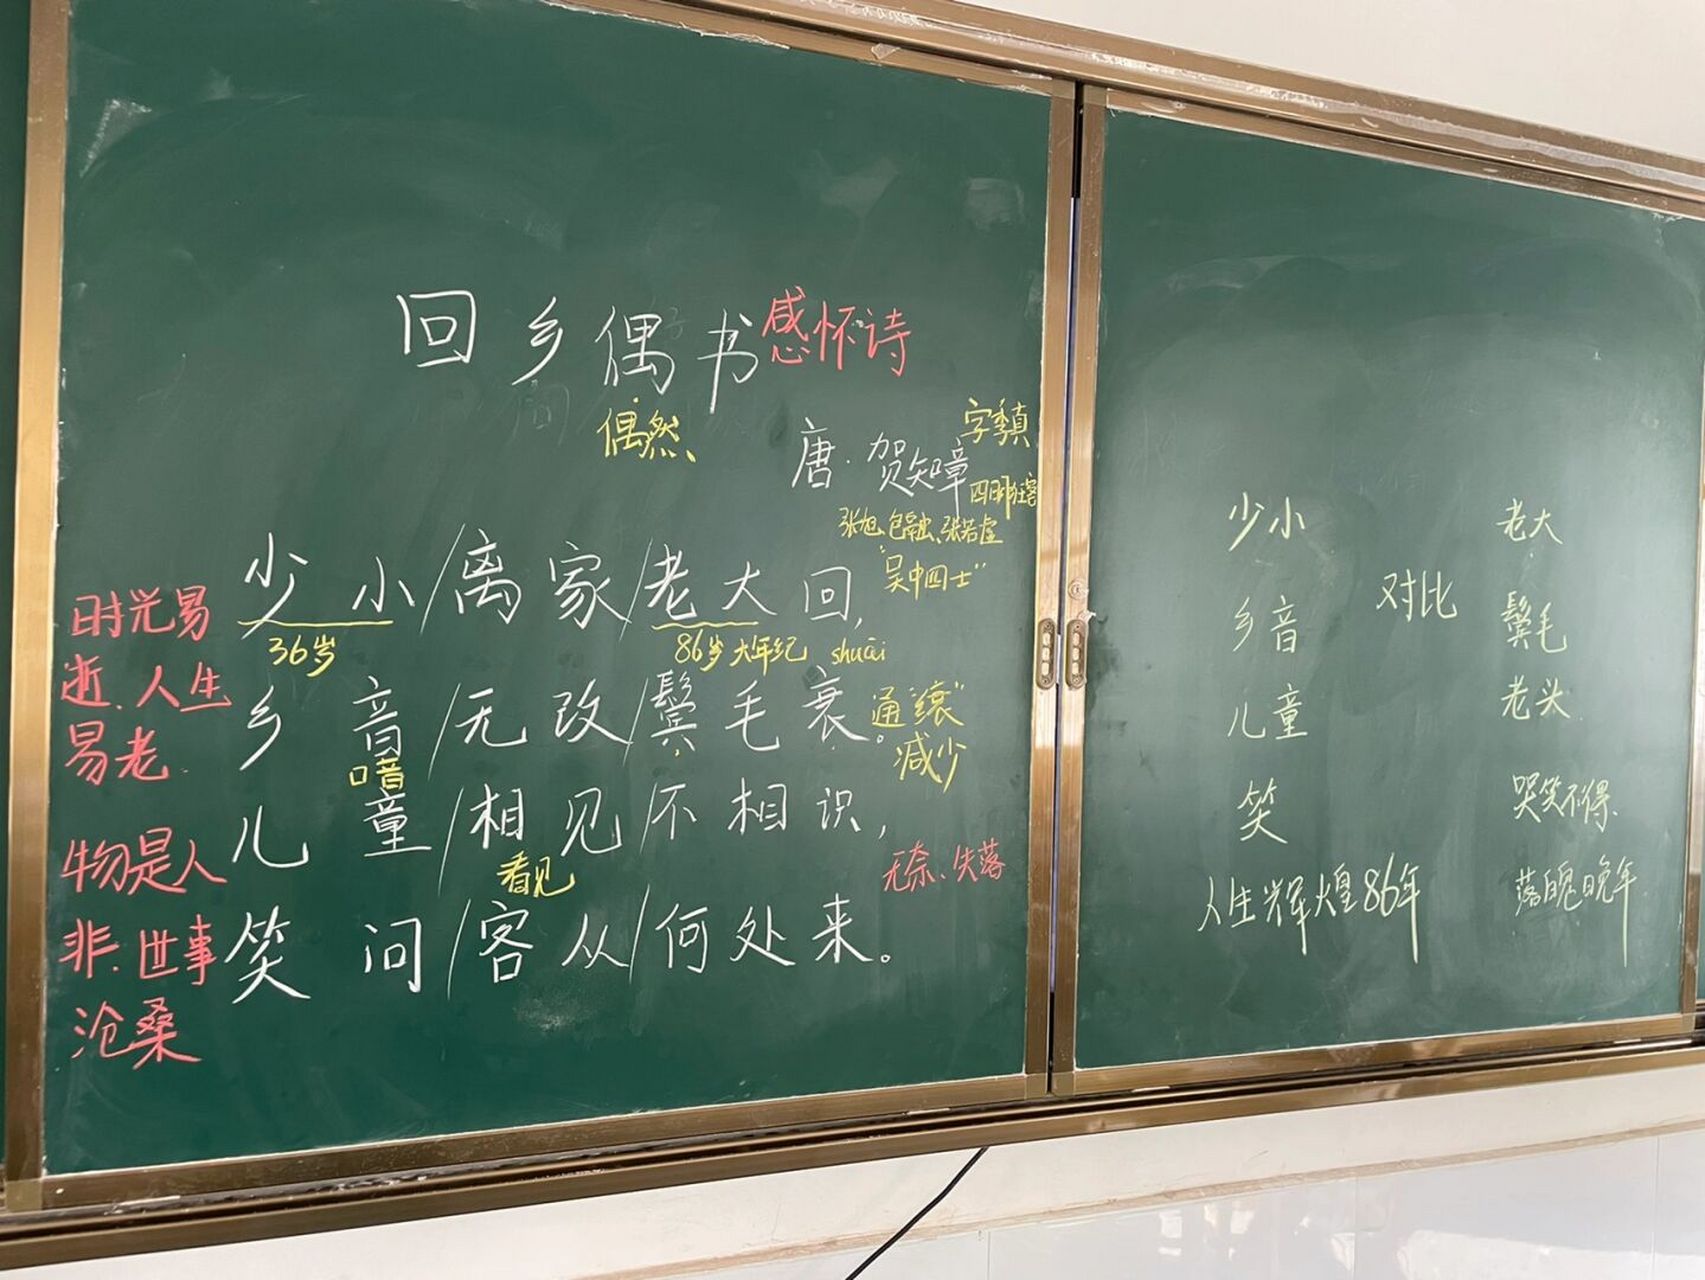 回乡偶书 感怀诗
偶然
字季真
唐·贺知章
四明狂客
张旭、包融、张若虚
"吴中四士"
少小/离家/老大回,
36岁
86岁 大年纪 shuāi
乡音/无改/鬓毛衰。
通"衰"
减少
喑
儿童/相见/不相识,
看见
无奈、失落
笑问/客从/何处来。
时光易
逝、人生
易老
物是人
非、世事
沧桑
少小 老大
对比
乡音 鬓毛
儿童 老头
笑 哭笑不得
人生辉煌86年 落魄晚年